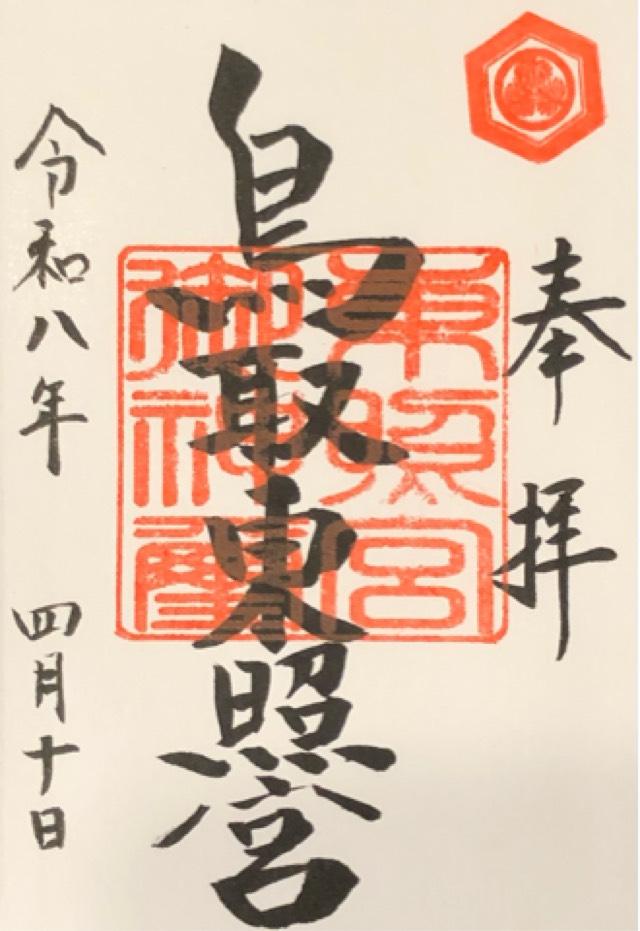 奉拝
鳥取東照宮
東照宮
御神璽
令和八年 四月十日